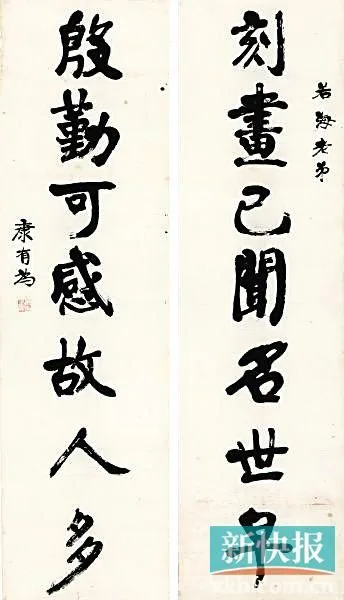 若海老弟
刻畫已聞名世早
殷勤可感故人多
康有為
新快报